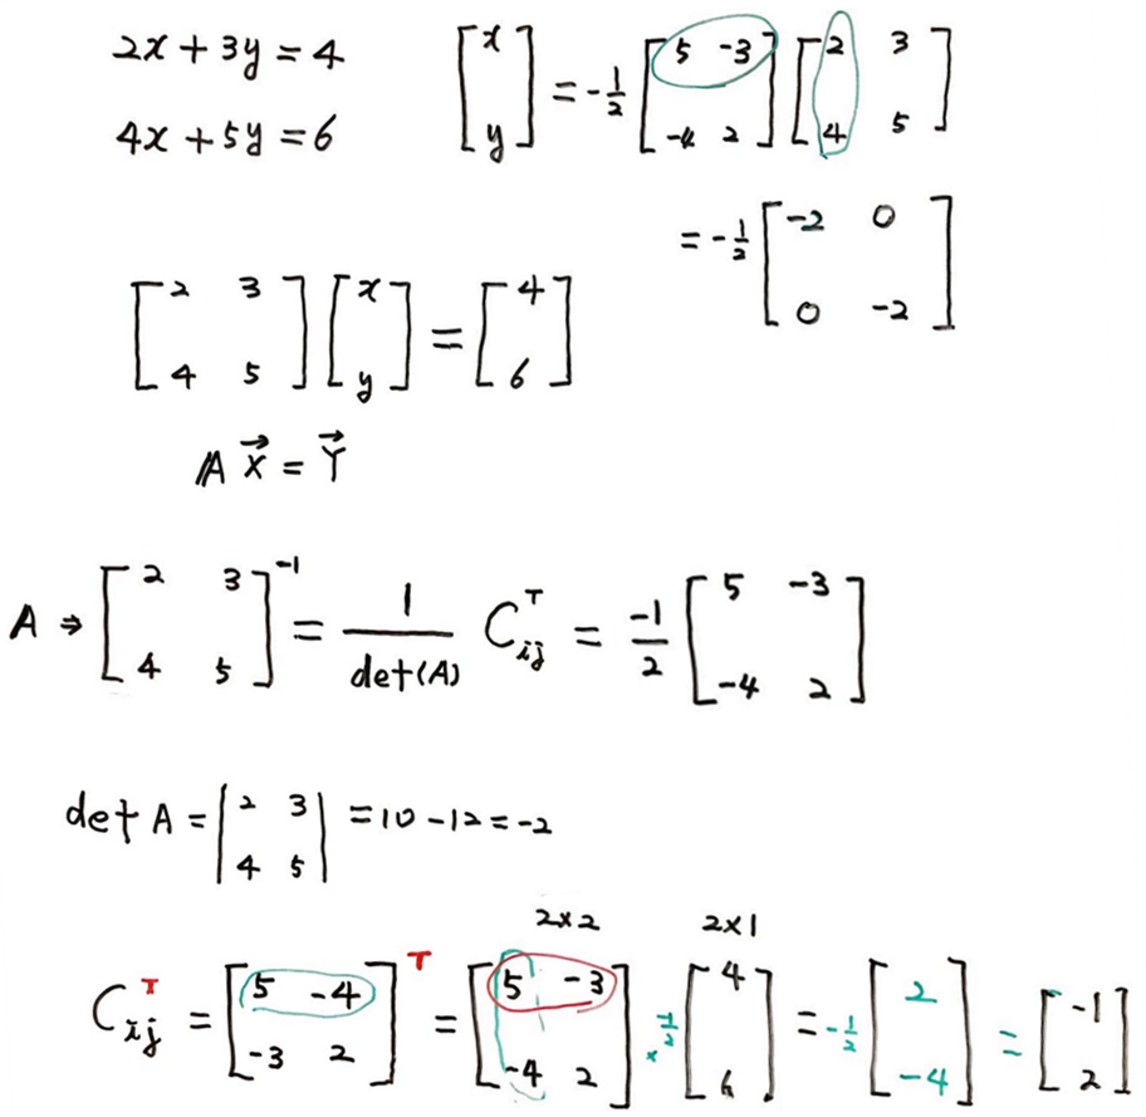 2x + 3y = 4
4x + 5y = 6
[x y] = -1/2 [5 -3; -4 2] [2 3; 4 5]
= -1/2 [-2 0; 0 -2]
[2 3; 4 5] [x y] = [4 6]
A X⃗ = Y⃗
A ⇒ [2 3; 4 5]^-1 = 1/det(A) C_ij^T = -1/2 [5 -3; -4 2]
det A = |2 3; 4 5| = 10 - 12 = -2
2×2 2×1
C_ij^T = [5 -4; -3 2]^T = [5 -3; -4 2] × -1/2 [4 6] = -1/2 [2 -4] = [-1 2]